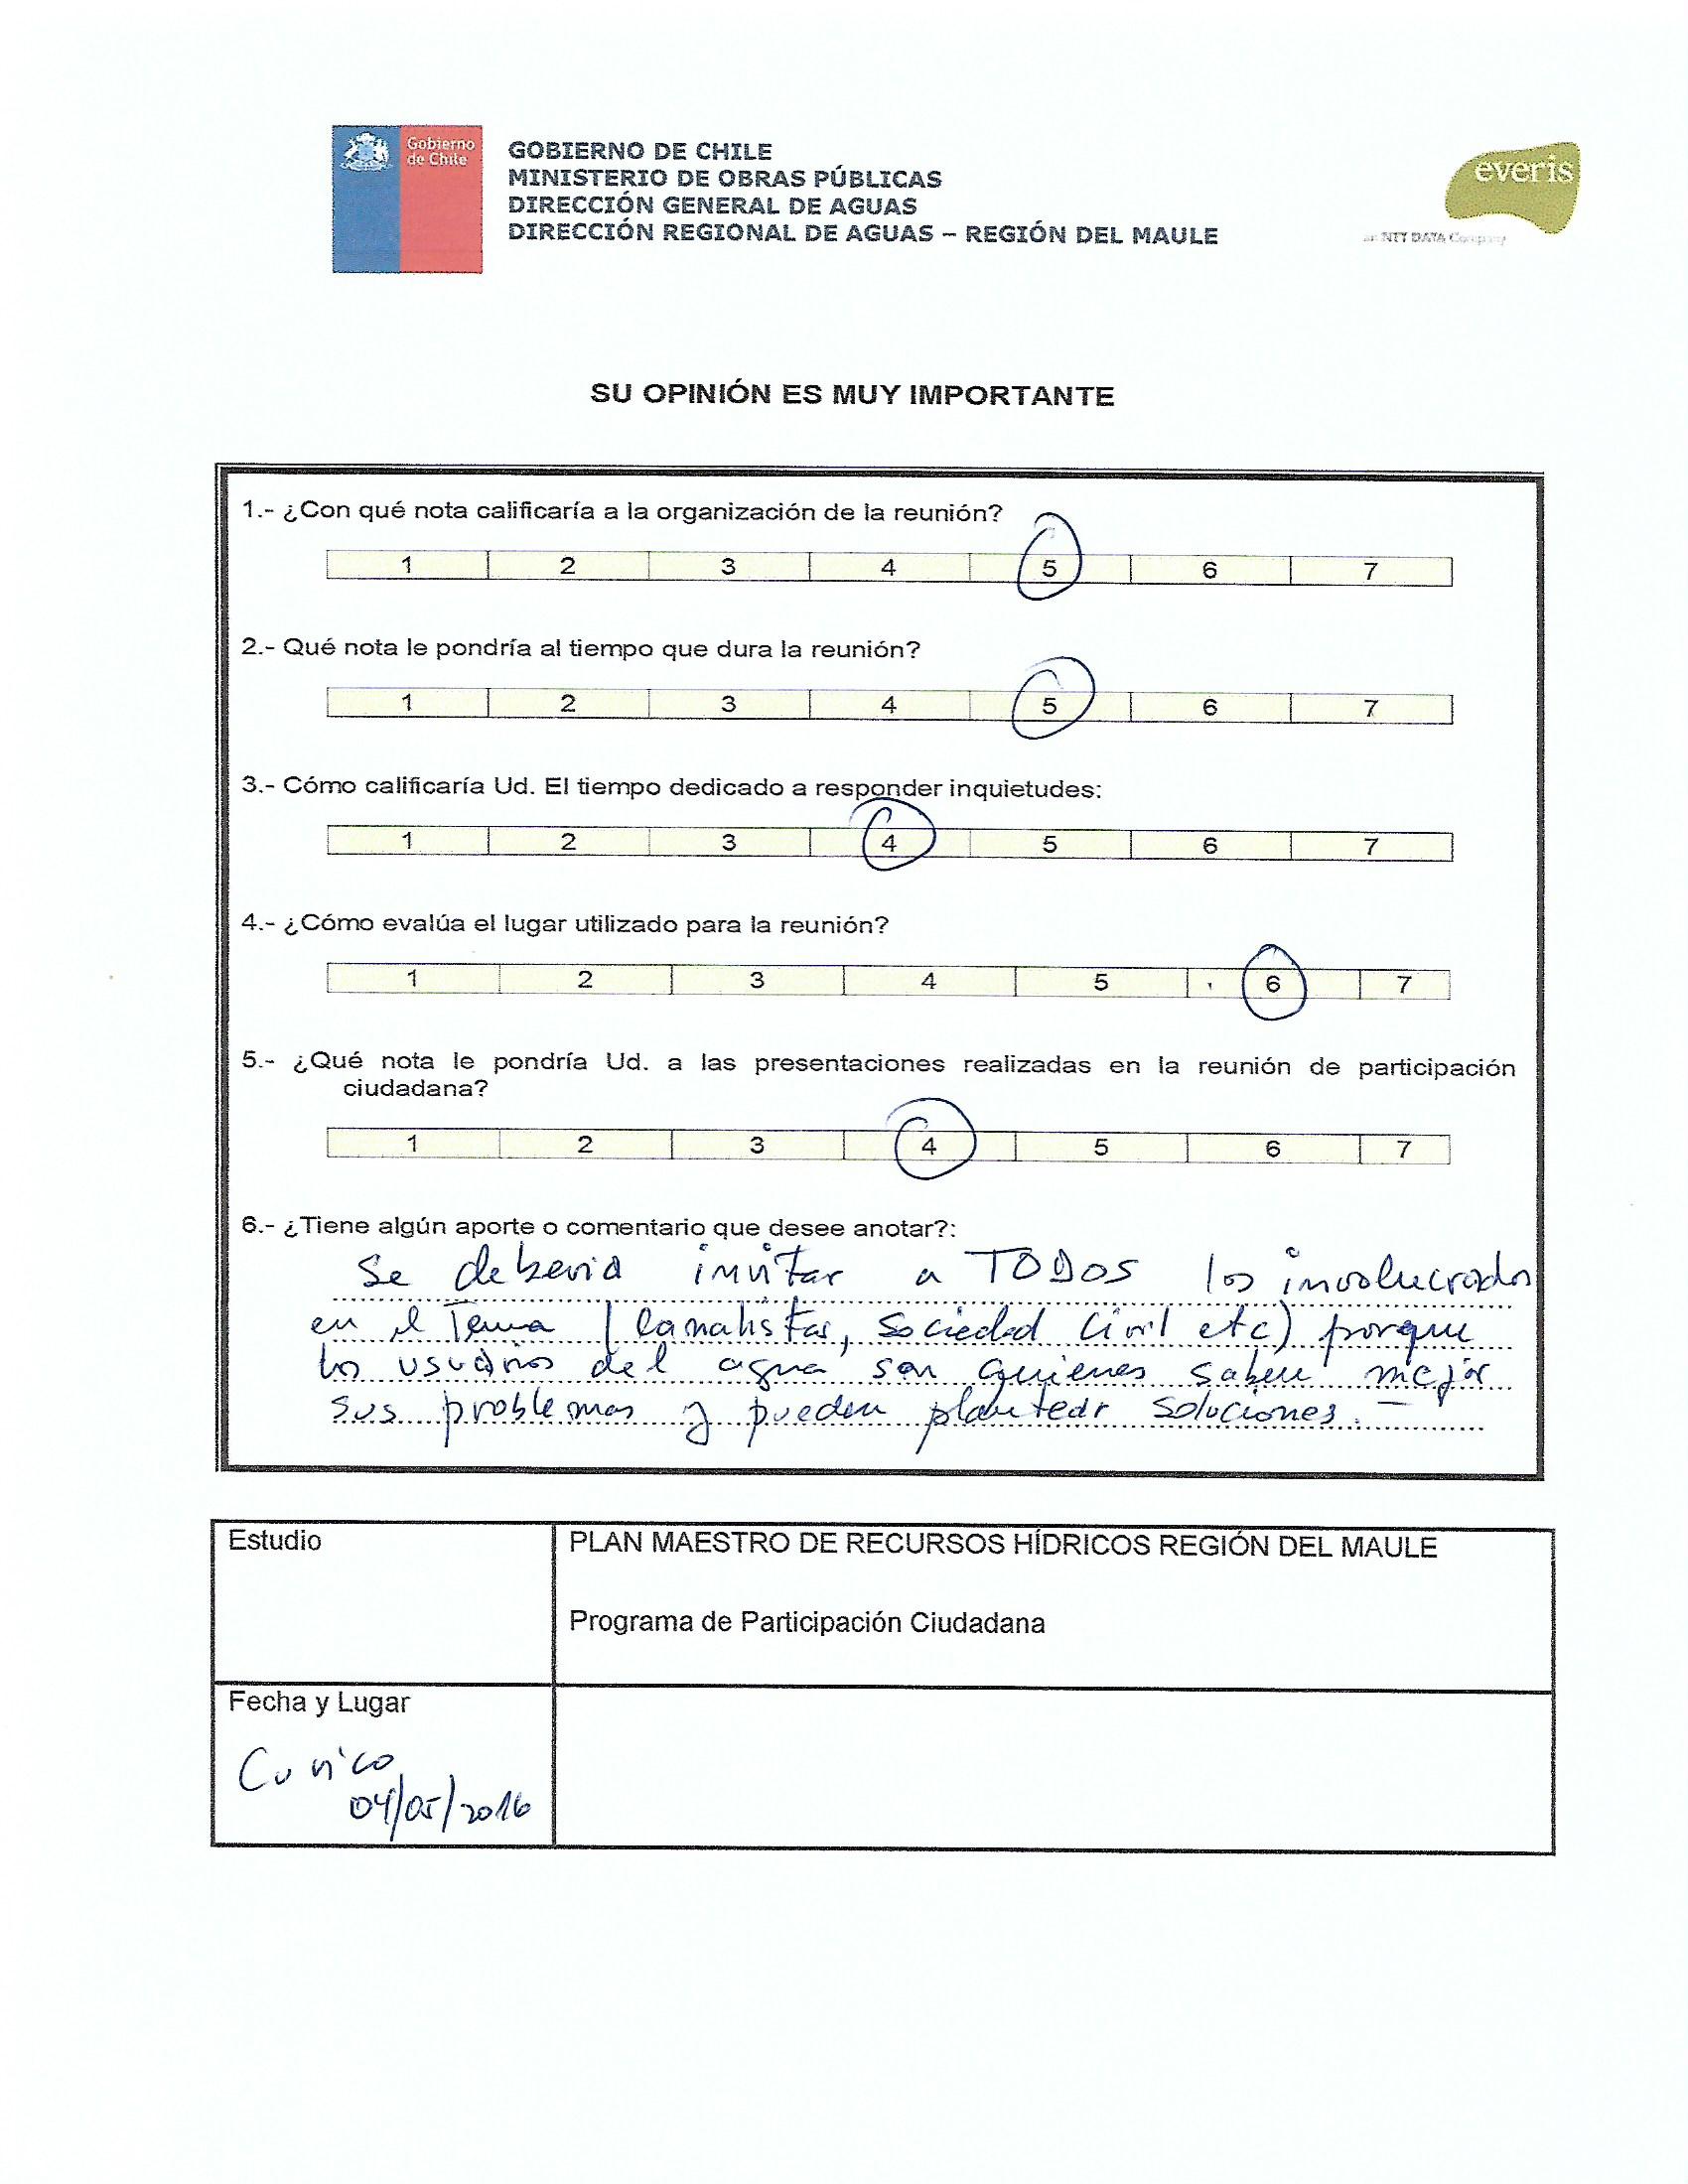 Gobierno
de Chile
GOBIERNO DE CHILE
MINISTERIO DE OBRAS PÚBLICAS
DIRECCIÓN GENERAL DE AGUAS
DIRECCIÓN REGIONAL DE AGUAS – REGIÓN DEL MAULE
everis
an NTT DATA Company
SU OPINIÓN ES MUY IMPORTANTE
1.- ¿Con qué nota calificaría a la organización de la reunión?
1 2 3 4 5 6 7
2.- Qué nota le pondría al tiempo que dura la reunión?
1 2 3 4 5 6 7
3.- Cómo calificaría Ud. El tiempo dedicado a responder inquietudes:
1 2 3 4 5 6 7
4.- ¿Cómo evalúa el lugar utilizado para la reunión?
1 2 3 4 5 6 7
5.- ¿Qué nota le pondría Ud. a las presentaciones realizadas en la reunión de participación
ciudadana?
1 2 3 4 5 6 7
6.- ¿Tiene algún aporte o comentario que desee anotar?:
Se deberia invitar a TODOS los involucrados
en el Tema (canalistas, Sociedad Civil etc) porque
los usuarios del agua son quienes saben mejor
sus problemas y pueden plantear soluciones.–
Estudio
PLAN MAESTRO DE RECURSOS HÍDRICOS REGIÓN DEL MAULE
Programa de Participación Ciudadana
Fecha y Lugar
Curico
04/05/2016